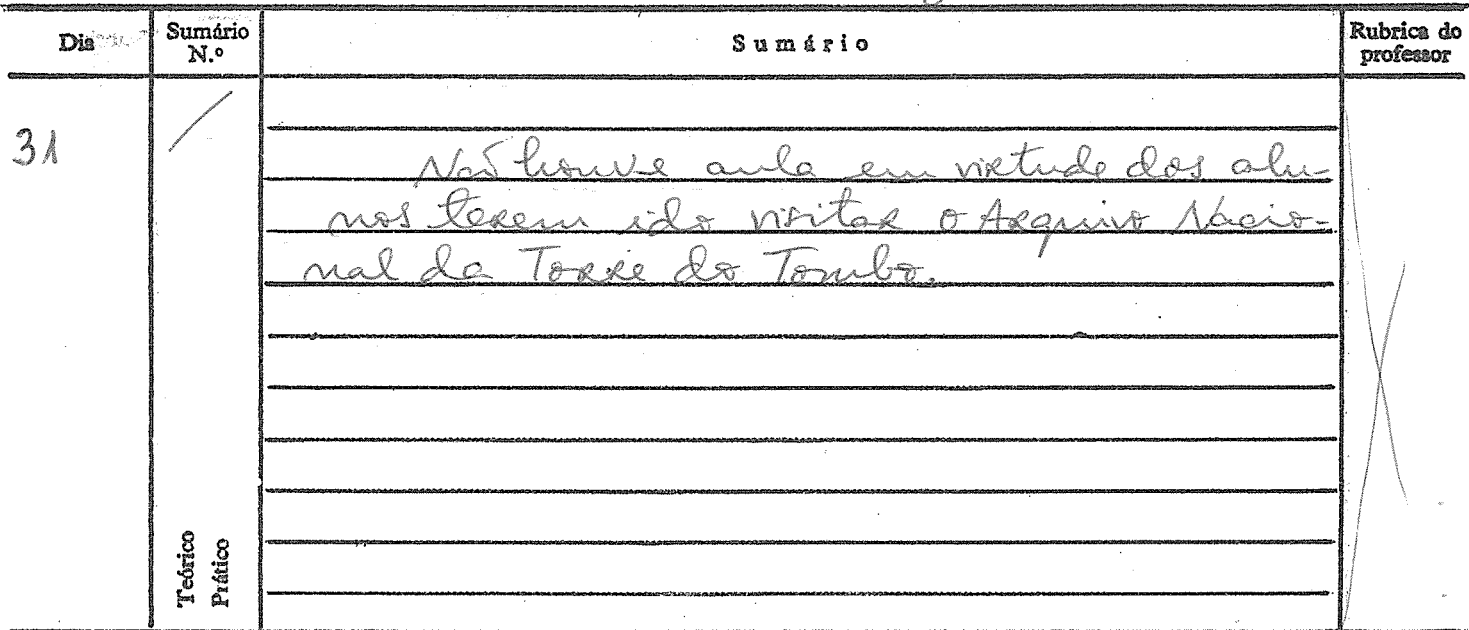 Dia Sumário N.º Sumário Rubrica do professor
31 /
Não houve aula em virtude dos alu-
nos terem ido visitar o Arquivo Nacio-
nal da Torre do Tombo.
Teórico
Prático